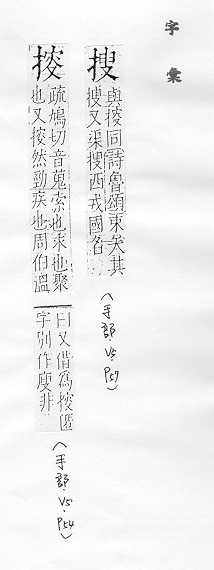 字彙
搜
與𢯱同詩魯頌束矢其
搜又渠搜西戎國名
(手部.V5.P57)
𢯱
疏鳩切音蒐索也求也聚
也又𢯱然勁疾也周伯溫
曰又借為𢯱匿
字別作廋非
(手部.V5.P54)